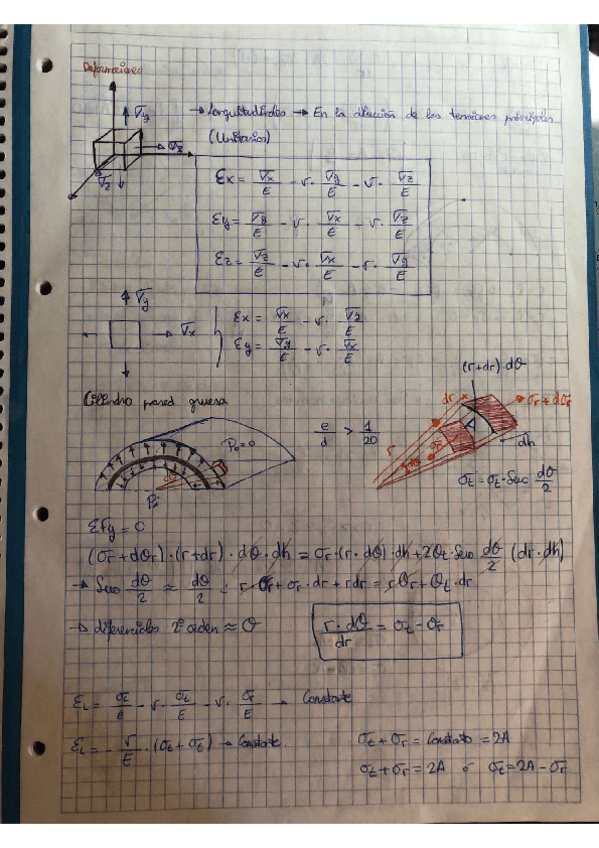 Deformaciones
σy
σx
σz
→ Longitudinales → En la dirección de las tensiones principales
(Unitarias)
εx = σx/E - ν · σy/E - ν · σz/E
εy = σy/E - ν · σx/E - ν · σz/E
εz = σz/E - ν · σx/E - ν · σy/E
σy
σx
εx = σx/E - ν · σy/E
εy = σy/E - ν · σx/E
(r+dr)·dθ
Cilindro pared gruesa
Po=0
e/d > 1/20
dr
σr+dσr
r
σr
dθ
A
dh
dθ
Pi
σt = σt · Seno dθ/2
ΣFy = 0
(σr + dσr)·(r+dr)·dθ·dh = σr·(r·dθ)·dh + 2σt·Seno dθ/2 (dr·dh)
→ Seno dθ/2 ≈ dθ/2 : r σr + σr · dr + r dr = r σr + σt · dr
→ diferenciales 2º orden ≈ 0
r · dσ/dr = σt - σr
εL = σL/E - ν · σt/E - ν · σr/E → Constante
εL = - ν/E · (σt + σt) → Constante
σt + σr = Constante = 2A
σt + σr = 2A ó σt = 2A - σr